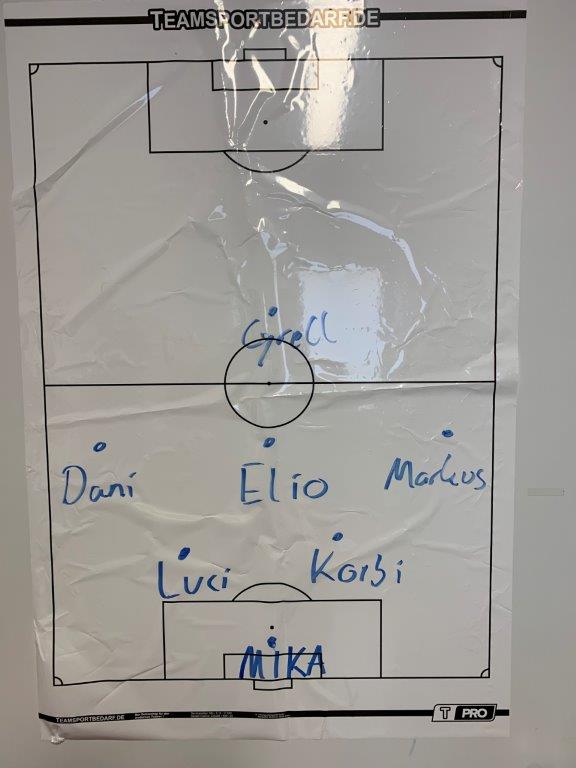 TEAMSPORTBEDARF.DE
Cyrell
Dani
Elio
Markus
Luci
Korbi
MIKA
TEAMSPORTBEDARF.DE
T PRO